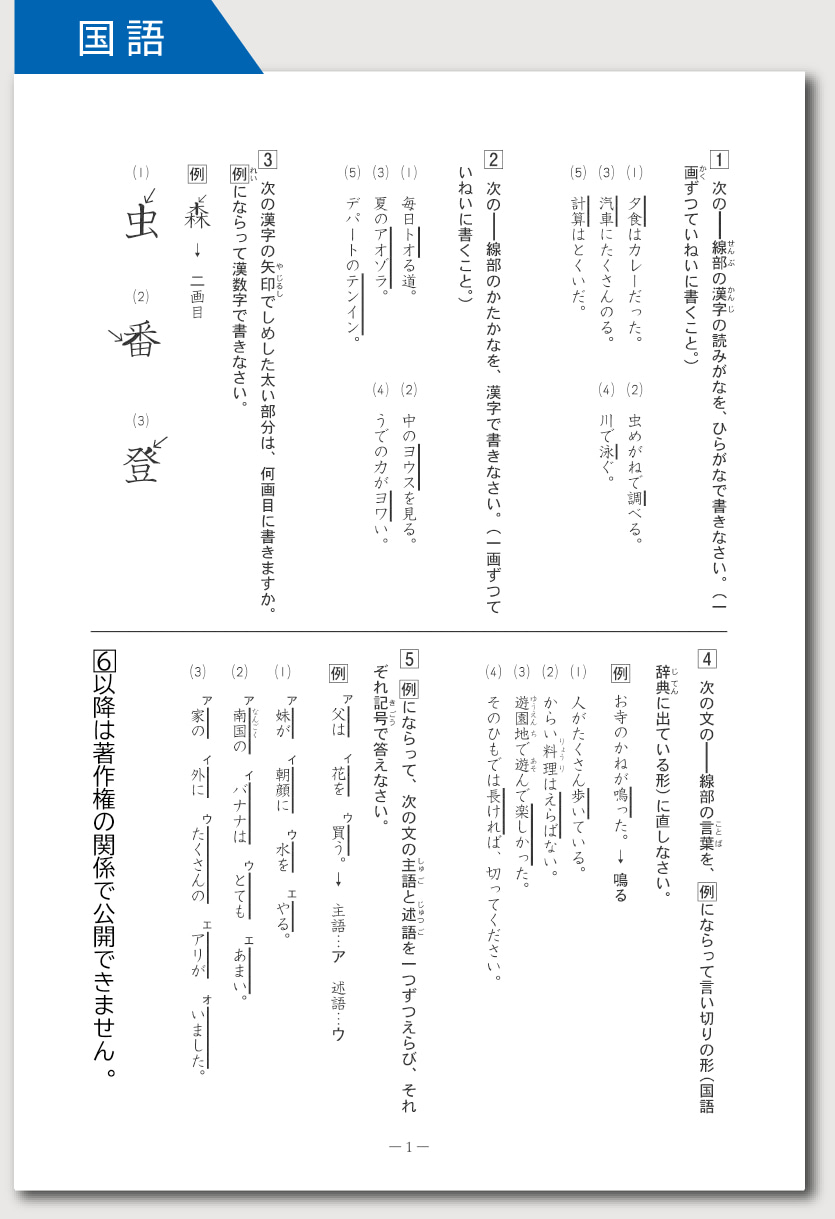 国語
1 次の――線部の漢字の読みがなを、ひらがなで書きなさい。（一
画ずつていねいに書くこと。）
(1) 夕食はカレーだった。
(2) 虫めがねで調べる。
(3) 汽車にたくさんのる。
(4) 川で泳ぐ。
(5) 計算はとくいだ。
2 次の――線部のかたかなを、漢字で書きなさい。（一画ずつて
いねいに書くこと。）
(1) 毎日トオる道。
(2) 中のヨウスを見る。
(3) 夏のアオゾラ。
(4) うでの力がヨワい。
(5) デパートのテンイン。
3 次の漢字の矢印でしめした太い部分は、何画目に書きますか。
例にならって漢数字で書きなさい。
例 森 → 二画目
(1) 虫
(2) 番
(3) 登
4 次の文の――線部の言葉を、例にならって言い切りの形（国語
辞典に出ている形）に直しなさい。
例 お寺のかねが鳴った。→ 鳴る
(1) 人がたくさん歩いている。
(2) からい料理はえらばない。
(3) 遊園地で遊んで楽しかった。
(4) そのひもでは長ければ、切ってください。
5 例にならって、次の文の主語と述語を一つずつえらび、それ
ぞれ記号で答えなさい。
例 ア父は イ花を ウ買う。→ 主語…ア 述語…ウ
(1) ア妹が イ朝顔に ウ水を エやる。
(2) ア南国の イバナナは ウとても エあまい。
(3) ア家の イ外に ウたくさんの エアリが オいました。
6以降は著作権の関係で公開できません。
― 1 ―